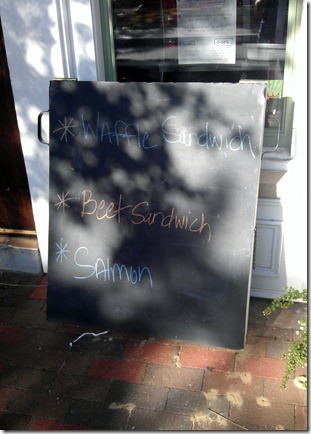 * Waffle Sandwich
* Beet Sandwich
* Salmon